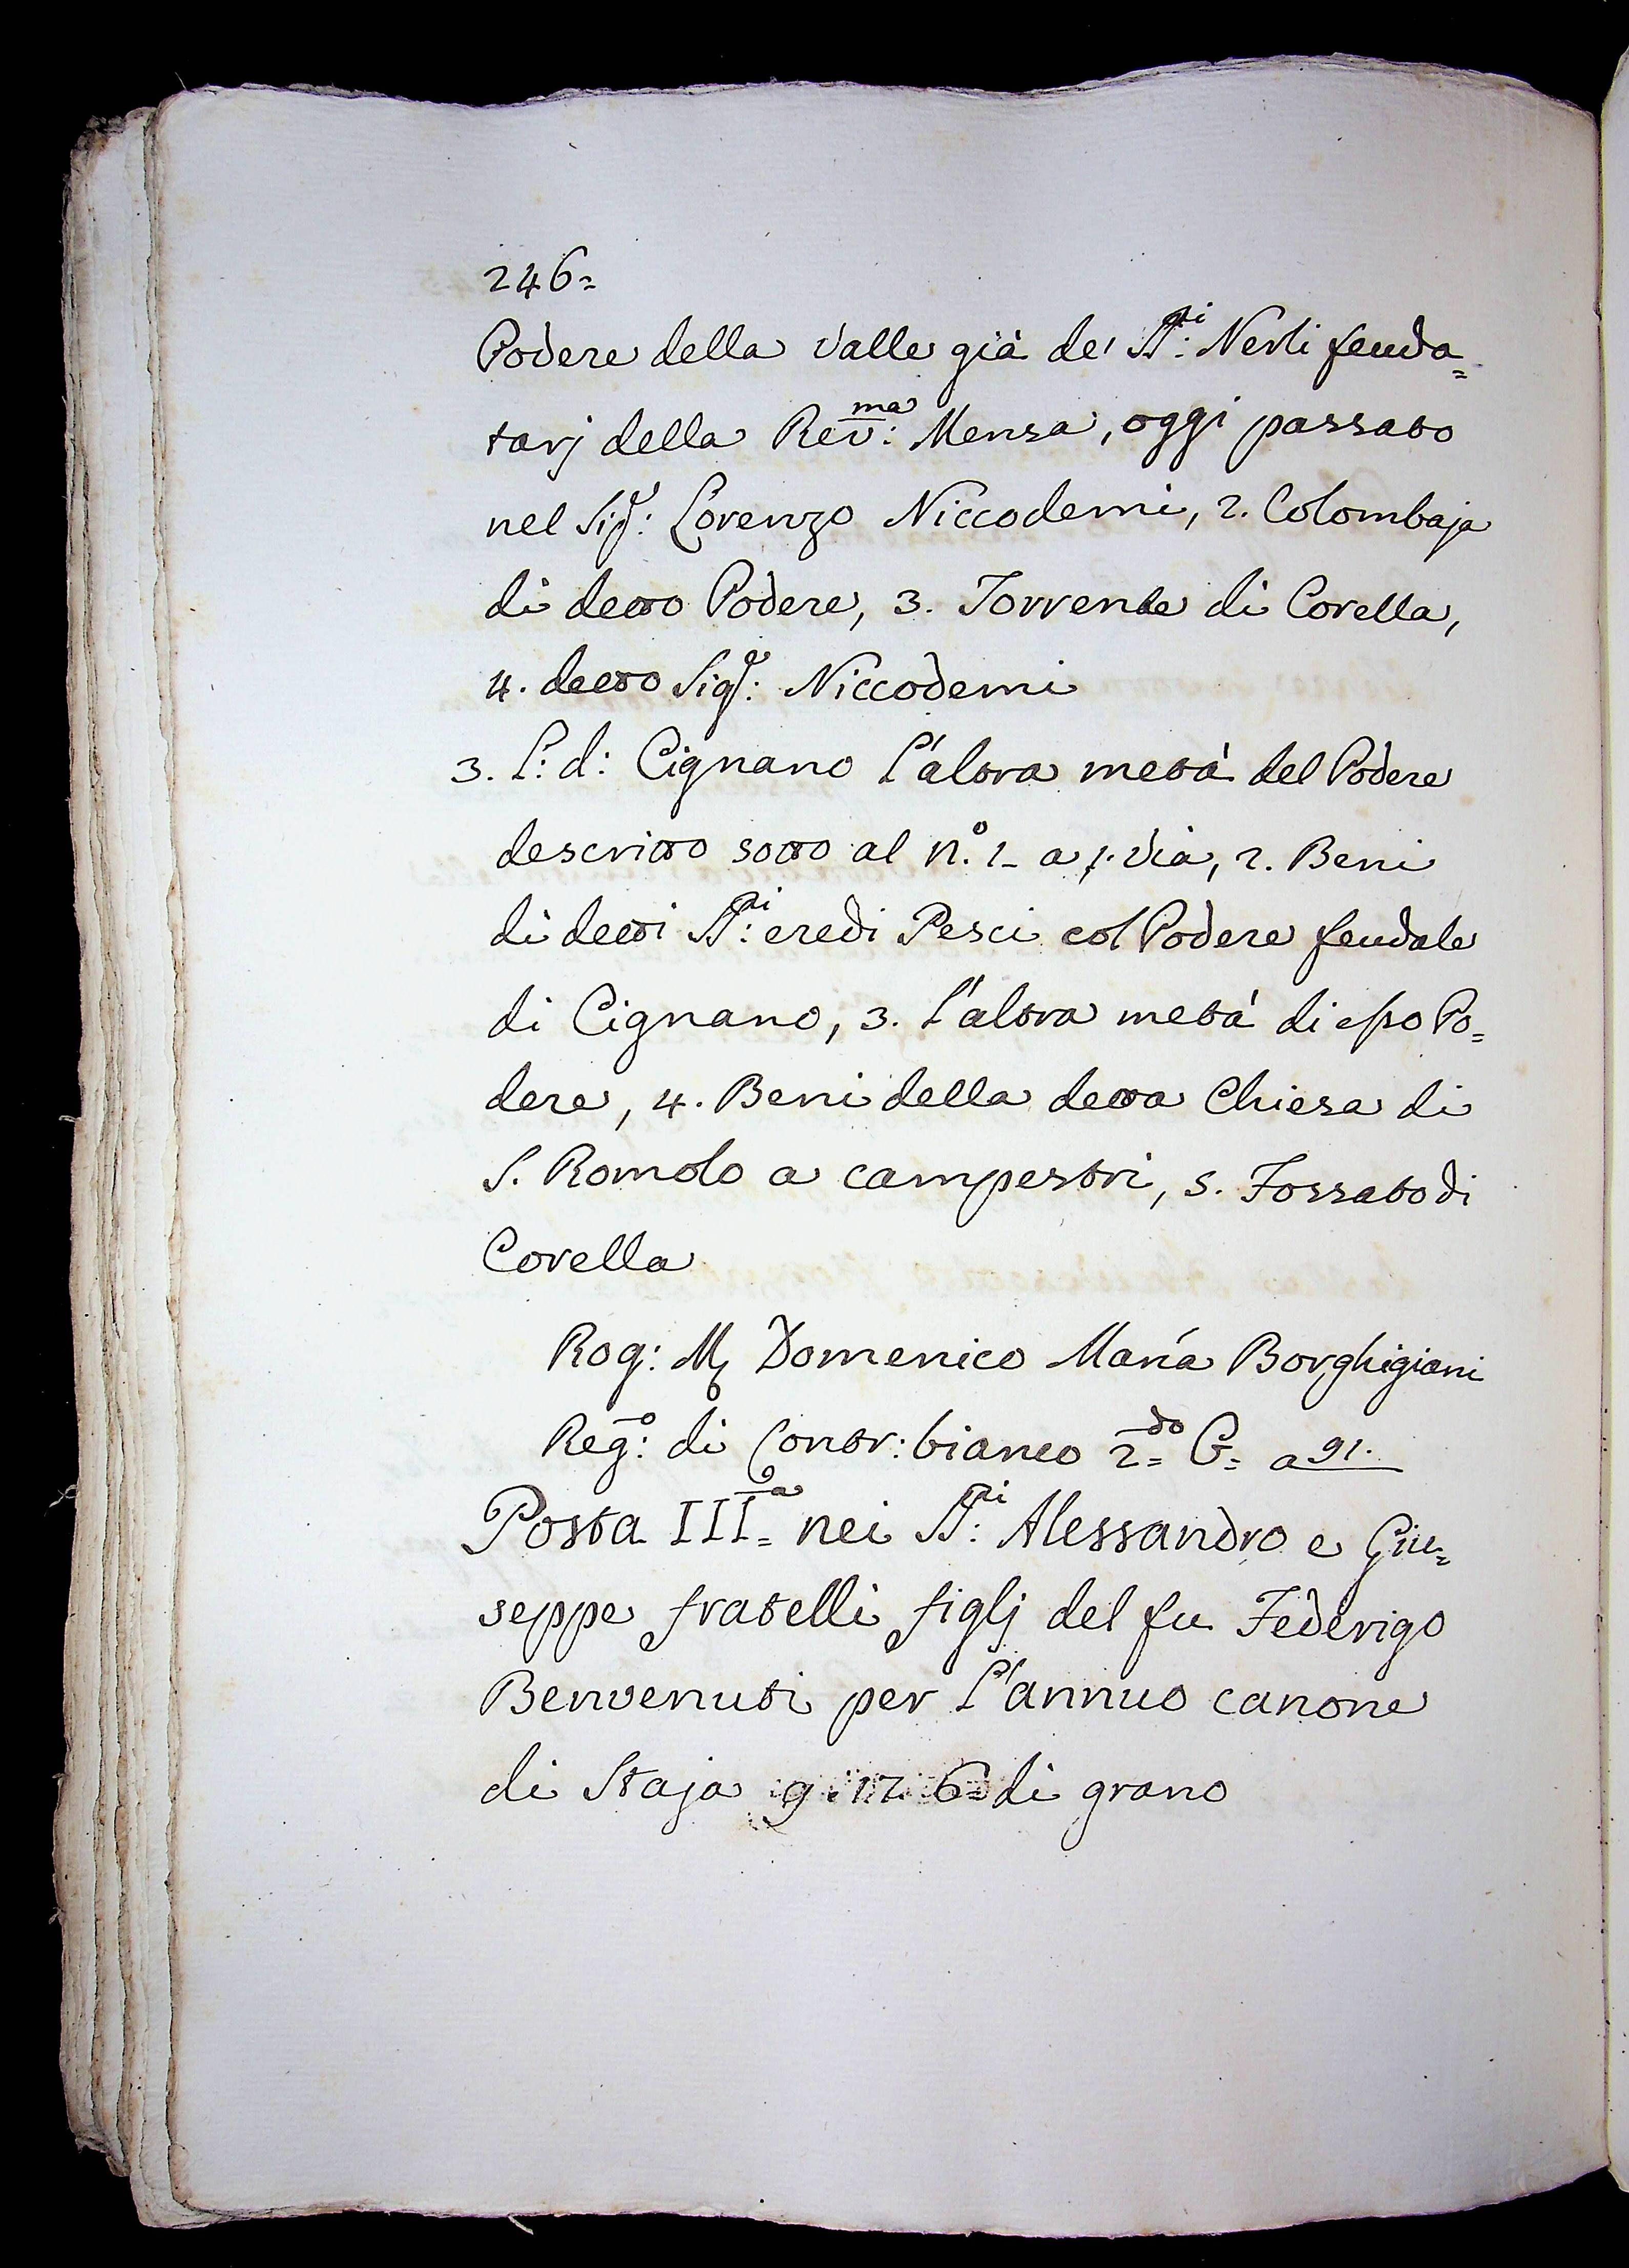 246=
Podere della Valle già de' SS:ri Nerli feuda=
tarj della Rev:ma Mensa, oggi passato
nel Sig:r Lorenzo Niccodemi, 2. Colombaja
di detto Podere, 3. Torrente di Corella,
4. detto Sig:r Niccodemi
3. L: d: Cignano l'altra metà del Podere
descritto sotto al n.o 1- a 1. Via, 2. Beni
di detti SS:ri eredi Pesci col Podere feudale
di Cignano, 3. l'altra metà di esso Po=
dere, 4. Beni della detta Chiesa di
S. Romolo a campestri, 5. Fossato di
Corella
Rog: M. Domenico Maria Borghigiani
Reg:o di Contr: bianco 2=do G= a 91.
Posta III=a nei SS:ri Alessandro e Giu=
seppe fratelli figlj del fu Federigo
Benvenuti per l'annuo canone
di Staja 9. 17. 6= di grano